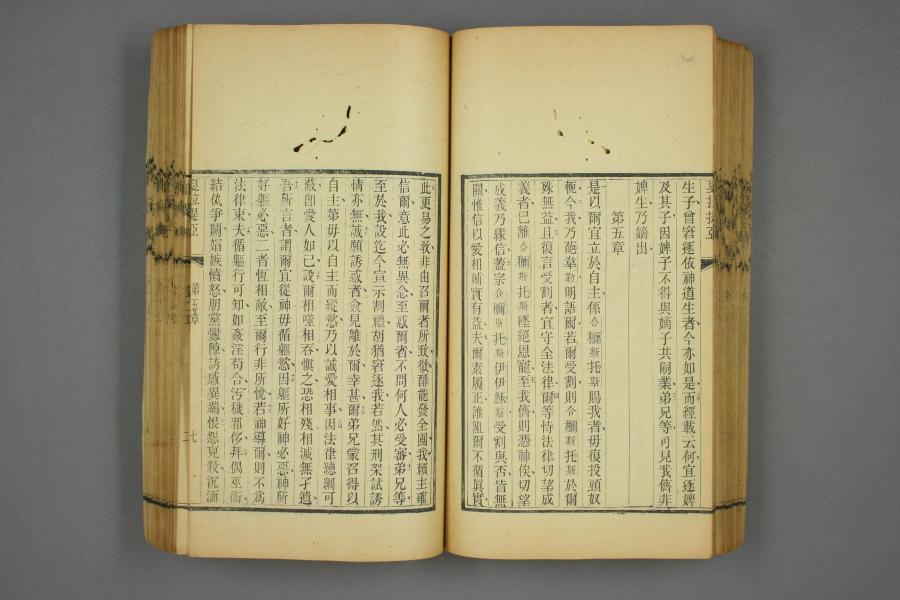 生子曾窘逐依神道生者今亦如是而經載云何宜逐婢
及其子因婢子不得與嫡子共嗣業弟兄等可見我儕非
婢生乃嫡出
第五章
是以爾宜立於自主係合彌斯托斯賜我者毋復投頸奴
軛今我乃葩羣勒明語爾若爾受割則合彌斯托斯於爾
殊無益且復言受割者宜守全法律爾等恃法律切望成
義者已離合彌斯托斯墜絕恩寵至我儕則憑神俟切望
成義乃緣信蓋宗合彌斯托斯伊伊穌斯受割與否皆無
關惟信以愛相輔實有益夫爾素履正誰阻爾不循眞實
此更易之敎非由召爾者所致微酵能發全團我賴主確
信爾意此必無異念至惑爾者不問何人必受審弟兄等
至於我設迄今宣示割禮胡猶窘逐我若然其刑架試誘
情亦無誠願誘惑者僉見離於爾幸甚爾弟兄蒙召得以
自主第毋以自主而縱慾乃以誠愛相事因法律總綱可
蔽卽愛人如己設爾相噬相吞愼之恐相殘相滅無孑遺
吾所言者謂爾宜從神毋循軀慾因軀所好神必惡神所
好軀必惡二者恆相敵至爾行非所悅若神導爾則不爲
法律束夫循軀行可知如姦淫苟合污穢邪侈拜偶巫術
結仇爭鬭媢嫉憤怒朋黨釁隙誘惑異端恨怨兇殺沉湎
第五章
七